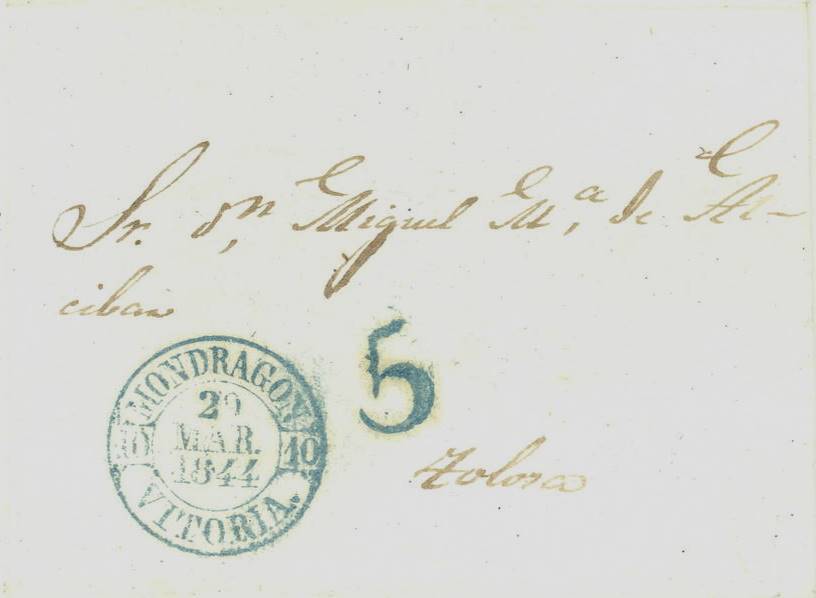 Sr. Dn. Miguel Ma. de Al-
cibar
5
MONDRAGON
29
MAR.
1844
10 10
VITORIA.
Tolosa